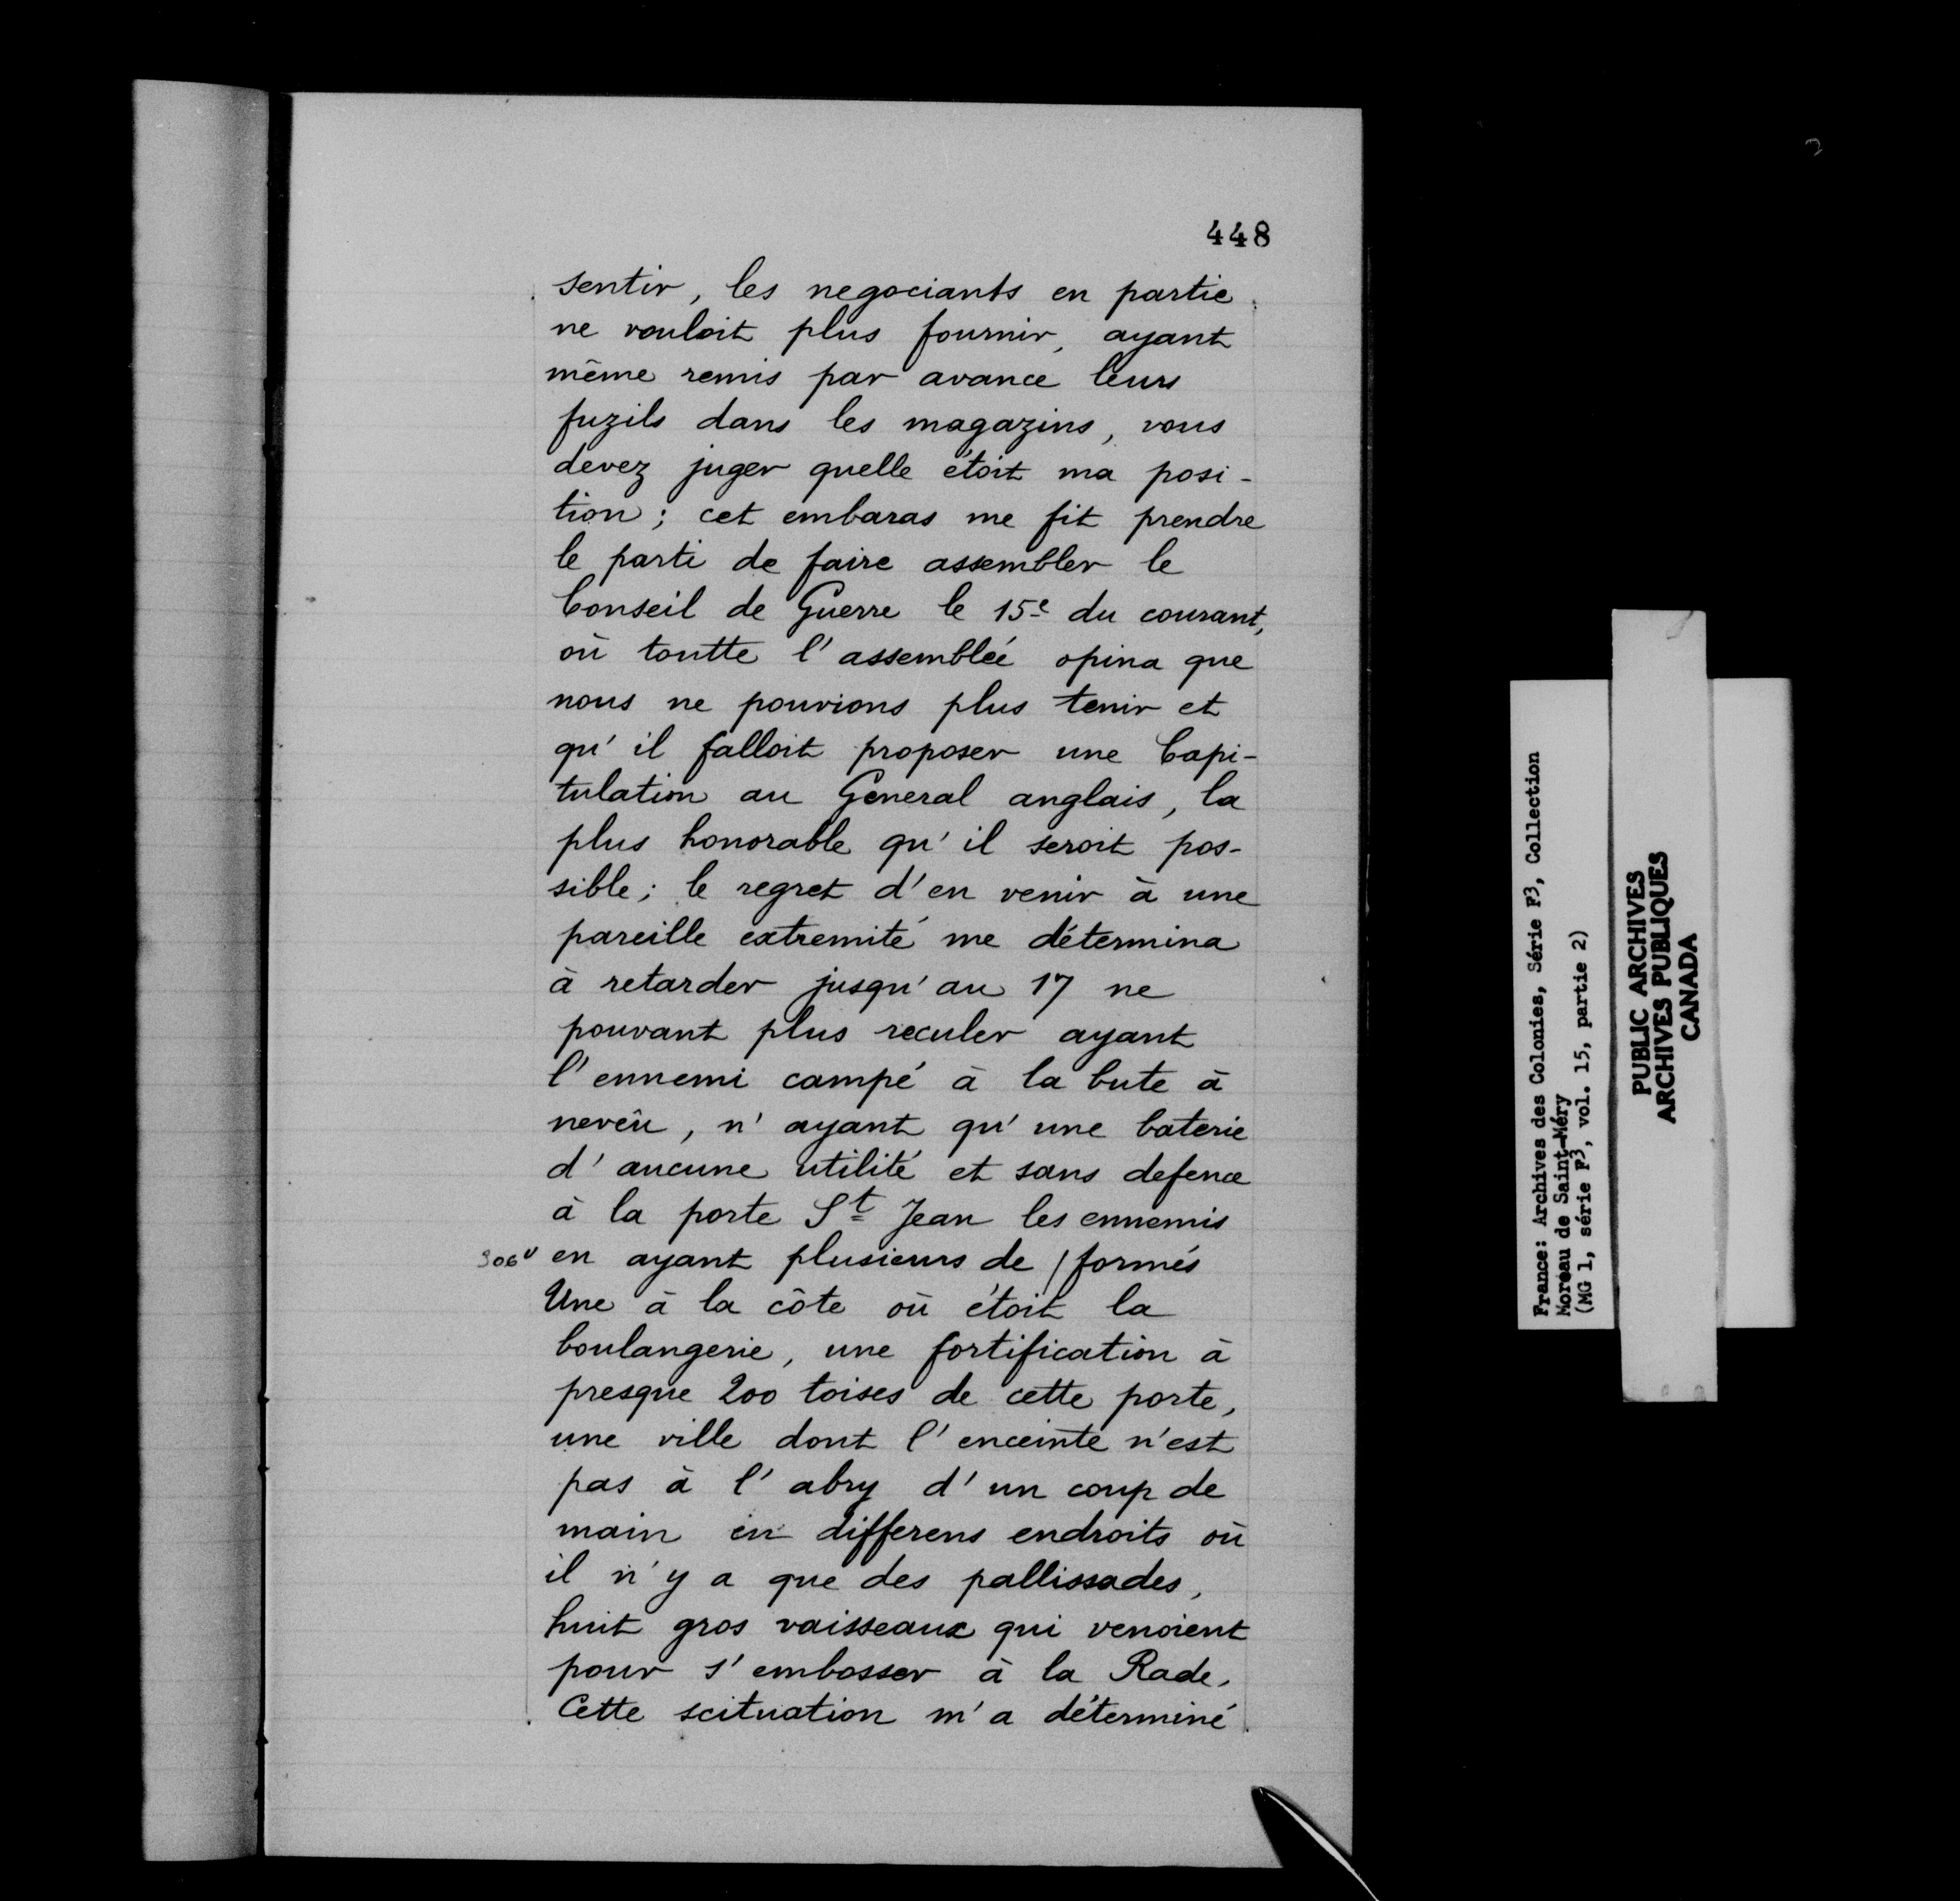 448
sentir, les negociants en partie
ne vouloit plus fournir, ayant
même remis par avance leurs
fuzils dans les magazins, vous
devez juger quelle étoit ma posi-
tion; cet embaras me fit prendre
le parti de faire assembler le
Conseil de Guerre le 15e du courant,
où toutte l'assemblée opina que
nous ne pouvions plus tenir et
qu'il falloit proposer une Capi-
tulation au General anglais, la
plus honorable qu'il seroit pos-
sible; le regret d'en venir à une
pareille extremité me détermina
à retarder jusqu'au 17 ne
pouvant plus reculer ayant
l'ennemi campé à la bute à
nevêu, n'ayant qu'une baterie
d'aucune utilité et sans defence
à la porte St Jean les ennemis
306v en ayant plusieurs de / formés
Une à la côte où étoit la
boulangerie, une fortification à
presque 200 toises de cette porte,
une ville dont l'enceinte n'est
pas à l'abry d'un coup de
main en differens endroits où
il n'y a que des pallissades,
huit gros vaisseaux qui venoient
pour s'embosser à la Rade.
Cette scituation m'a déterminé
France: Archives des Colonies, Série F3, Collection
Moreau de Saint-Méry
(MG 1, série F3, vol. 15, partie 2)
PUBLIC ARCHIVES
ARCHIVES PUBLIQUES
CANADA